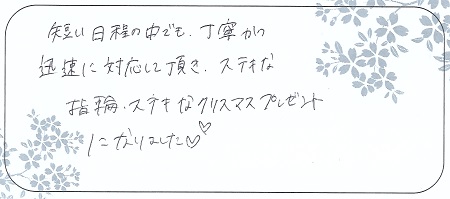 短い日程の中でも、丁寧かつ
迅速に対応して頂き、ステキな
指輪、ステキなクリスマスプレゼント
になりました♡♡